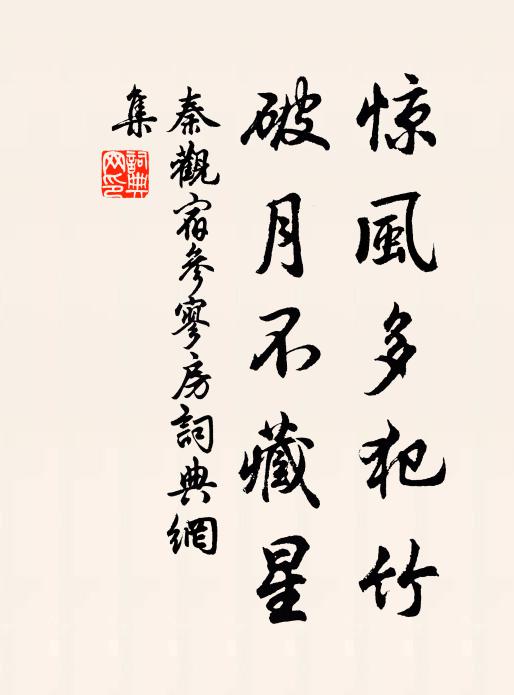 惊風多犯竹
破月不藏星
秦觀宿參寥房詞典網
集
詞典
网印